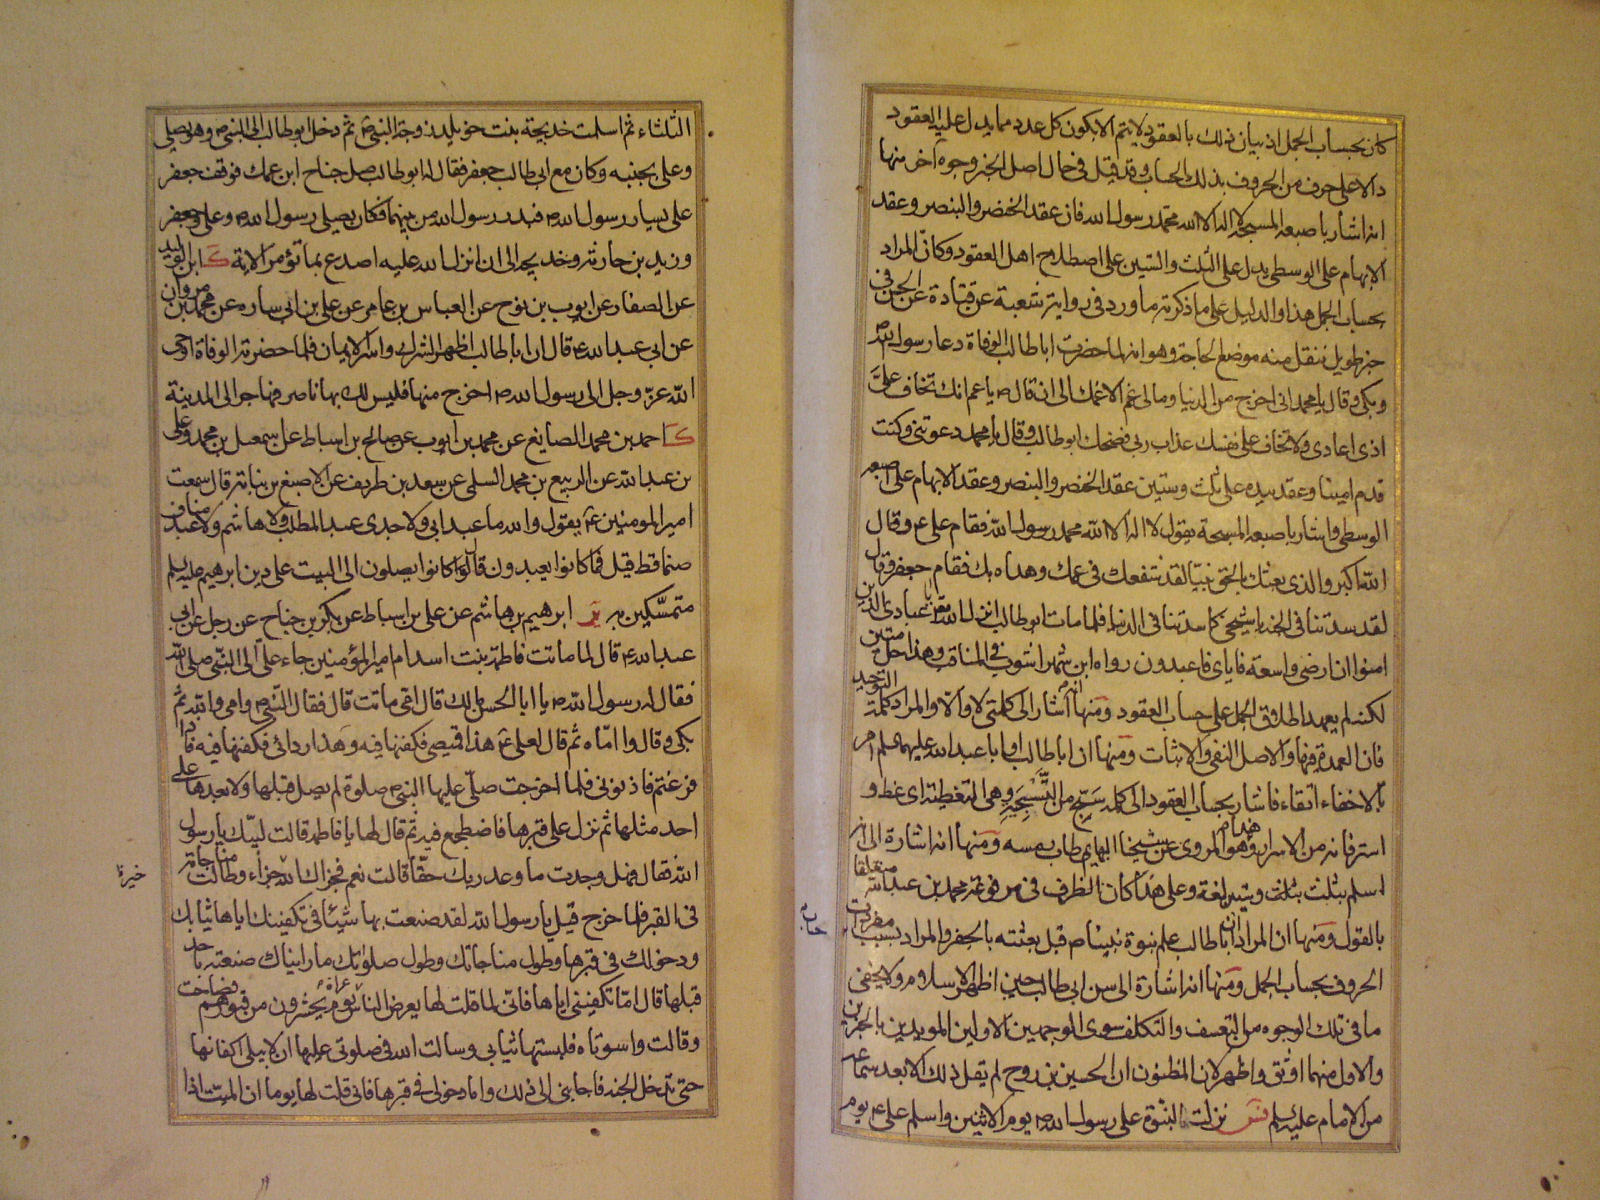 كان بحساب الجمل اذ بيان ذلك بالعقود لا يتم الا بكون كل عدد مما يدل عليه العقود
دالا على حرف من الحروف بذلك الحساب وقد قيل في حل اصل الخبر وجوه آخر منها
انه اشار باصبعه المسبحة لا اله الا الله محمد رسول الله فان عقد الخنصر والبنصر وعقد
الابهام على الوسطى يدل على الثلث والستين على اصطلاح اهل العقود وكان المراد
بحساب الجمل هذا والدليل على ما ذكرته ما ورد في رواية شعبة عن قتادة عن الحسن في
خبر طويل ننقل منه موضع الحاجة وهو انه لما حضرت ابا طالب الوفاة دعا رسول الله ص
وبكى وقال يا محمد انى اخرج من الدنيا وما لى غم الا غمك الى ان قال ص يا عم انك تخاف علىّ
اذى اعادى ولا تخاف على نفسك عذاب ربى فضحك ابو طالب وقال يا محمد دعوتنى وكنت
قدم امينا وعقد بيده على ثلث وستين عقد الخنصر والبنصر وعقد الابهام على اصبعه
الوسطى واشار باصبعه المسبحة يقول لا اله الا الله محمد رسول الله فقام على ع وقال
الله اكبر والذى بعثك بالحق نبيا لقد شفعك في عمك وهداه بك فقام جعفر وقال
لقد سدتنا في الجنة يا شيخى كما سدتنا في الدنيا فلما مات ابو طالب انزل الله تعالى يا عبادى الذين
امنوا ان ارضى واسعة فاياى فاعبدون رواه ابن شهر اشوب في المناقب وهذا حل متين
لكنه لم يعهد اطلاق الجمل على حساب العقود ومنها انه اشار الى كلمتى لا والا والمراد كلمة التوحيد
فان العمدة فيها والاصل النفى والاثبات ومنها ان ابا طالب او ابا عبد الله عليهما سلم امر
بالاخفاء اتقاء فاشار بحساب العقود الى كلمة سبّح من التسبيحة وهى التغطية اى غط و
استر فانه من الاسرار وهذا هو المروى عن شيخنا البهائى طاب رمسه ومنها انه اشارة الى انه
اسلم بثلث وستين لغة وعلى هذا كان الظرف في مرفوعة محمد بن عبد الله متعلقا
بالقول ومنها ان المراد ان ابا طالب علم نبوة نبينا ص قبل بعثته بالجفر والمراد بسبب مفردات
الحروف بحساب الجمل ومنها انه اشارة الى سن ابى طالب حين اظهر الاسلام ولا يخفى
ما في تلك الوجوه من التعسف والتكلف سوى الوجهين الاولين المويدين بالخبرين
والاول منهما اوثق واظهر لان المظنون ان الحسين بن روح لم يقل ذلك الا بعد سماعه
من الامام عليه سلم نزلت النبوة على رسول الله ص يوم الاثنين واسلم على ع يوم
الثلثاء ثم اسلمت خديجة بنت خويلد زوجة النبى ص ثم دخل ابو طالب الى النبى ص وهو يصلى
وعلى بجنبه وكان مع ابى طالب جعفر فقال له ابو طالب صل جناح ابن عمك فوقف جعفر
على يسار رسول الله ص فبدر رسول الله من بينهما فكان يصلى رسول الله ص وعلى وجعفر
وزيد بن حارثة وخديجة الى ان انزل الله عليه اصدع بما تؤمر الاية ك ابن الوليد
عن الصفار عن ايوب بن نوح عن العباس بن عامر عن على بن ابى ساره عن محمد بن مروان
عن ابى عبد الله ع قال ان ابا طالب اظهر الشرك واسر الايمان فلما حضرته الوفاة اوحى
الله عز وجل الى رسول الله ص اخرج منها فليس لك بها ناصر فهاجر الى المدينة
ك احمد بن محمد الصايغ عن محمد بن ايوب عن صالح بن اسباط عن اسمعيل بن محمد وعلى
بن عبد الله عن الربيع بن محمد السلمى عن سعد بن طريف عن الاصبغ بن نباتة قال سمعت
امير المومنين ع يقول والله ما عبد ابى ولا جدى عبد المطلب ولا هاشم ولا عبد مناف
صنما قط قيل فما كانوا يعبدون قال كانوا يصلون الى البيت على دين ابرهيم عليه سلم
متمسكين به ير ابرهيم بن هاشم عن على بن اسباط عن بكر بن جناح عن رجل عن ابى
عبد الله ع قال لما ماتت فاطمة بنت اسد ام امير المؤمنين جاء على الى النبى صلى الله
فقال له رسول الله ص يا ابا الحسن مالك قال امى ماتت قال فقال النبى ص وامى والله ثم
بكى وقال وا اماه ثم قال لعلى ع هذا قميصى فكفنها فيه وهذا ردائى فكفنها فيه فاذا
فرغتم فاذنونى فلما اخرجت صلى عليها النبى ص صلوة لم يصل قبلها ولا بعدها على
احد مثلها ثم نزل على قبرها فاضطجع فيه ثم قال لها يا فاطمة قالت لبيك يا رسول
الله فقال فهل وجدت ما وعد ربك حقا قالت نعم فجزاك الله جزاء وطالت مناجاته
خيرا
في القبر فلما خرج قيل يا رسول الله لقد صنعت بها شيئا في تكفينك اياها ثيابك
ودخولك في قبرها وطول مناجاتك وطول صلوتك ما رايناك صنعته باحد
قبلها قال اما تكفينى اياها فانى لما قلت لها يعرض الناس عراة يوم يحشرون من قبورهم فصاحت
وقالت واسوتاه فلبستها ثيابى وسالت الله في صلوتى عليها ان لا يبلى اكفانها
حتى تدخل الجنة فاجابنى الى ذلك واما دخولى في قبرها فانى قلت لها يوما ان الميت اذا